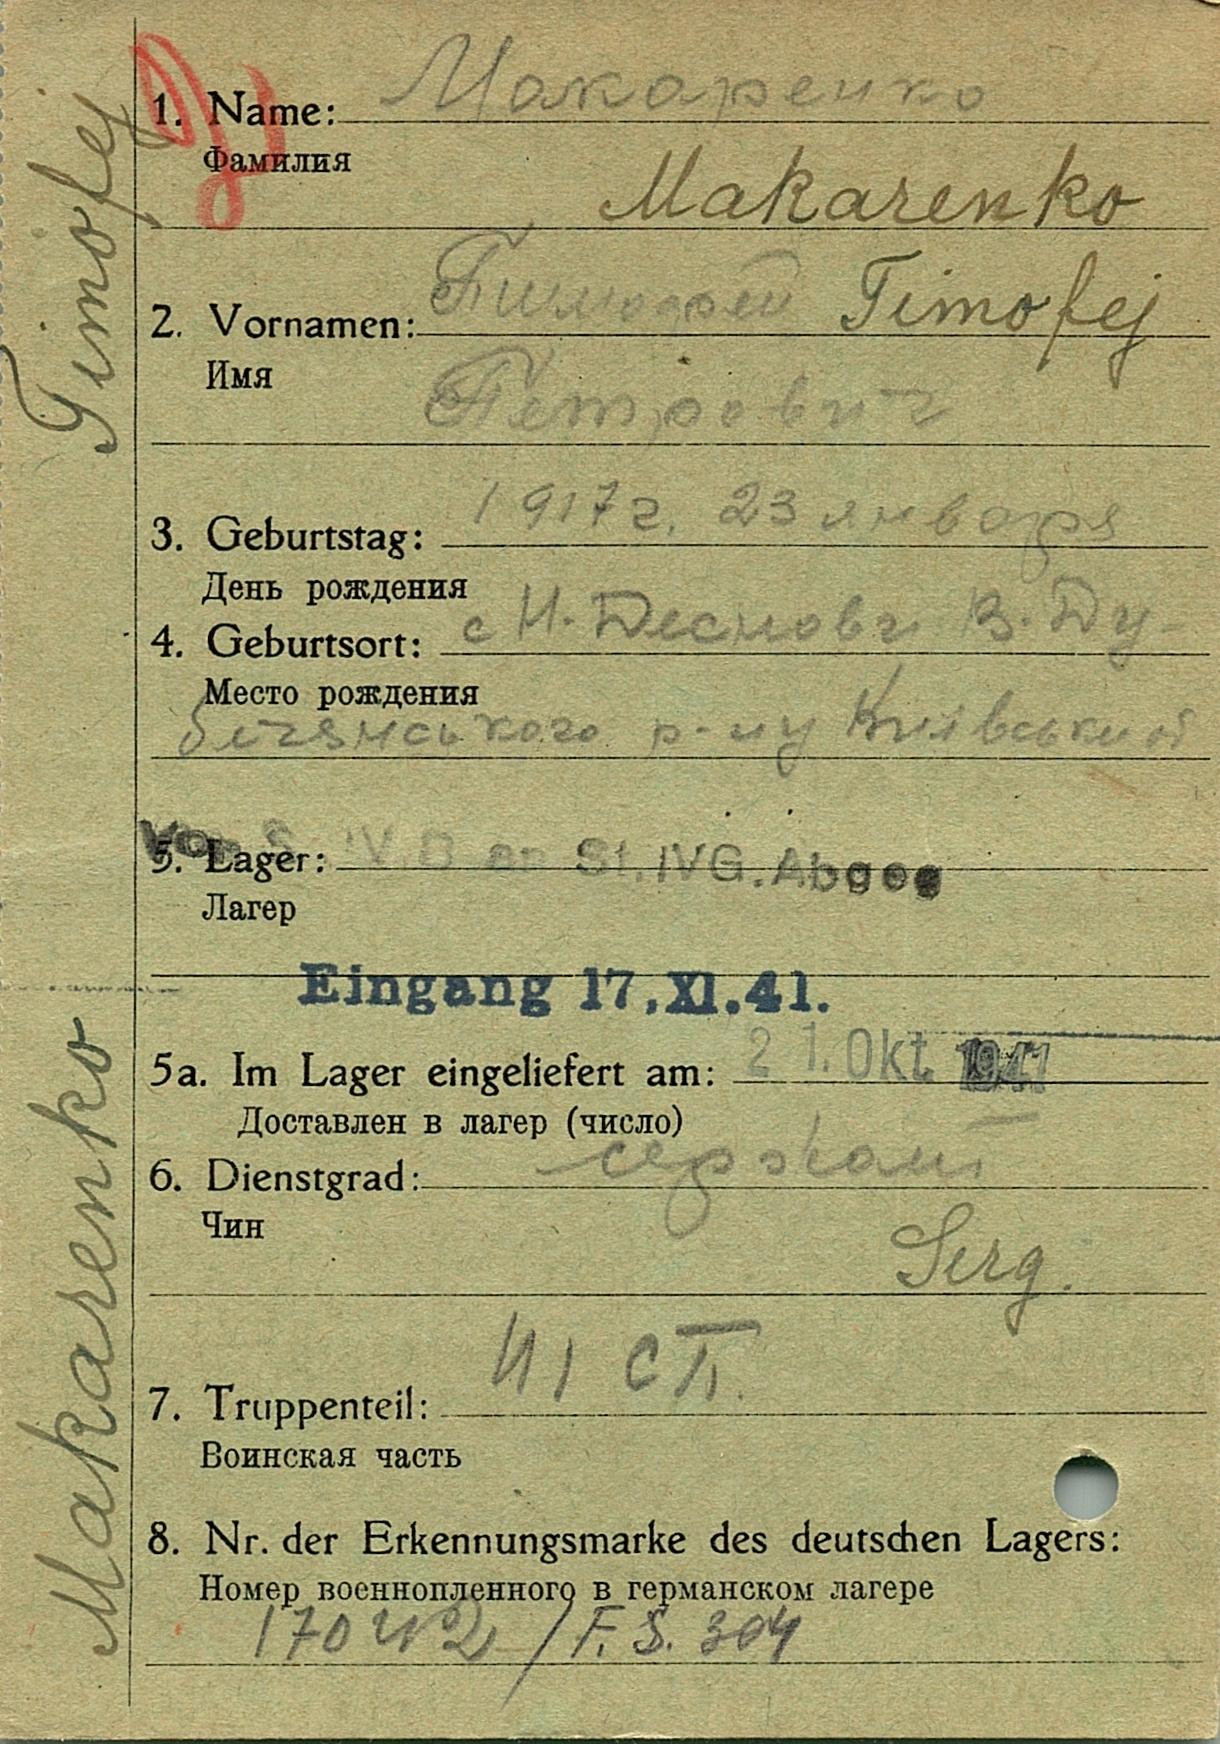 Timofej
Makarenko
1. Name: Макаренко
Фамилия
Makarenko
2. Vornamen: Тимофей Timofej
Имя
Петрович
3. Geburtstag: 1917 г. 23 января
День рождения
4. Geburtsort: с Н. В. Ду-
Место рождения
р-ну Київський
5. Lager: IV.B an St. IVG. Abgeg
Лагер
Eingang 17. XI. 41.
5a. Im Lager eingeliefert am: 21. Okt. 1941
Доставлен в лагер (число)
6. Dienstgrad: сержант
Чин
Serg.
41 СП.
7. Truppenteil:
Воинская часть
8. Nr. der Erkennungsmarke des deutschen Lagers:
Номер военнопленного в германском лагере
/ F. S. 304